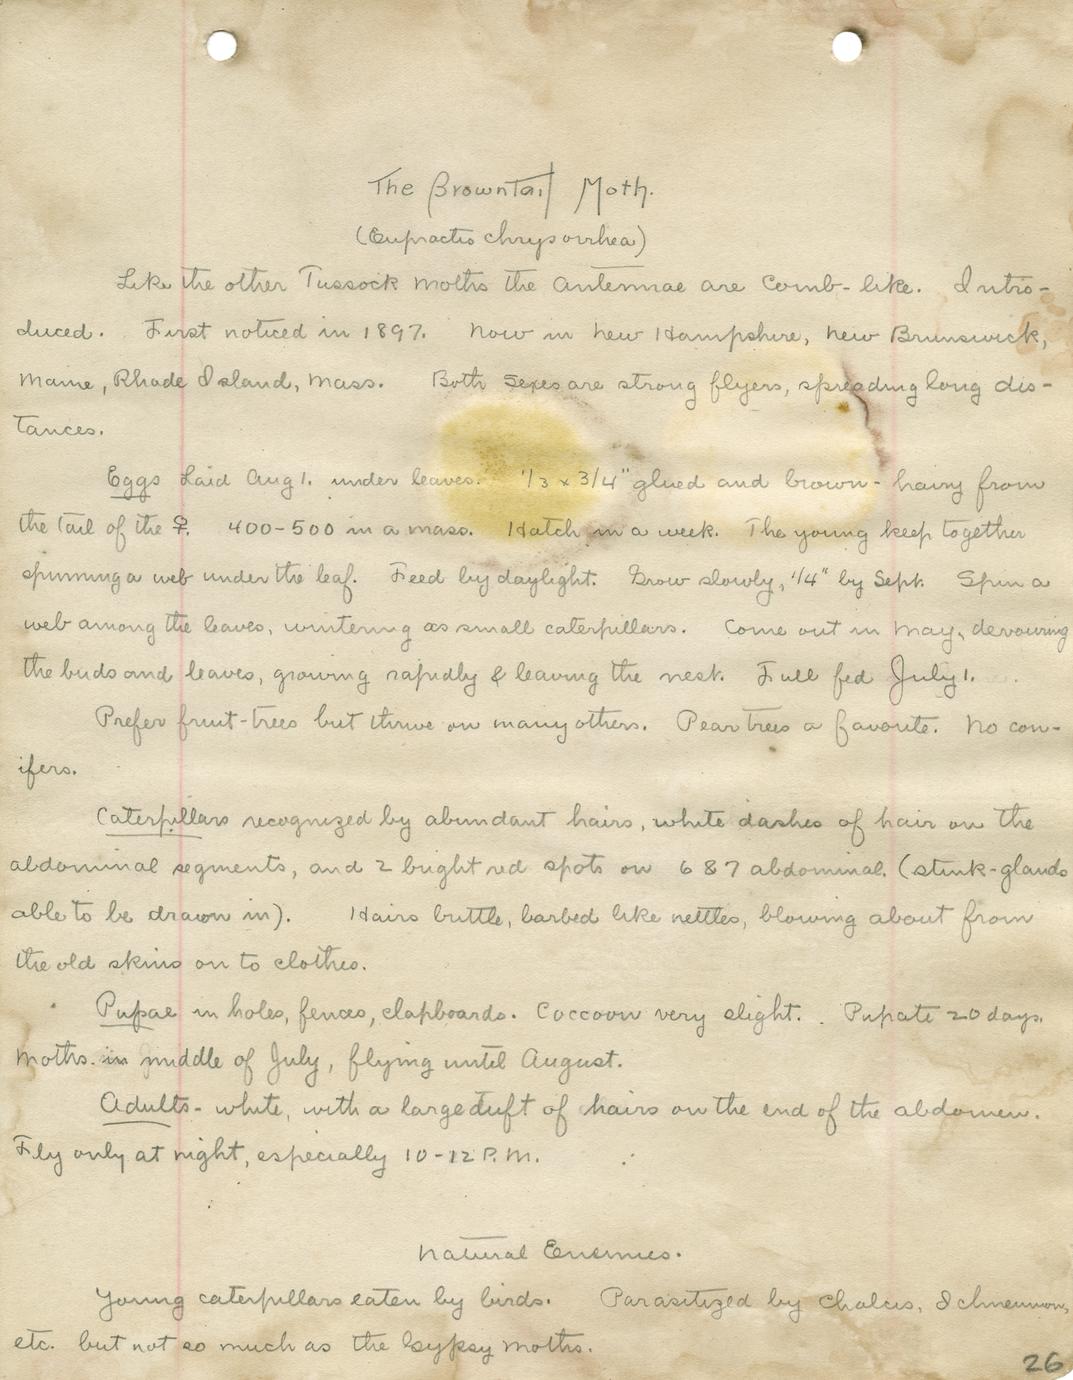 The Browntail Moth.
(Eupractis chrysorrhea)
Like the other Tussock moths the antennae are comb-like. Intro-
duced. First noticed in 1897. Now in New Hampshire, New Brunswick,
Maine, Rhode Island, Mass. Both sexes are strong flyers, spreading long dis-
tances.
Eggs Laid Aug 1. under leaves. 1/3 x 3/4" glued and brown-hairy from
the tail of the ♀. 400-500 in a mass. Hatch in a week. The young keep together
spinning a web under the leaf. Feed by daylight. Grow slowly, 1/4" by Sept. Spin a
web among the leaves, wintering as small caterpillars. Come out in May, devouring
the buds and leaves, growing rapidly & leaving the nest. Full fed July 1.
Prefer fruit-trees but thrive on many others. Pear trees a favorite. No con-
ifers.
Caterpillars recognized by abundant hairs, white dashes of hair on the
abdominal segments, and 2 bright red spots on 6 & 7 abdominal. (stink-glands
able to be drawn in). Hairs brittle, barbed like nettles, blowing about from
the old skins on to clothes.
Pupae in holes, fences, clapboards. Coccoon very slight. Pupate 20 days.
Moths in middle of July, flying until August.
Adults- white, with a large tuft of hairs on the end of the abdomen.
Fly only at night, especially 10-12 P.M.
Natural Enemies.
Young caterpillars eaten by birds. Parasitized by Chalcis, Ichneumon,
etc. but not so much as the Gypsy moths.
26